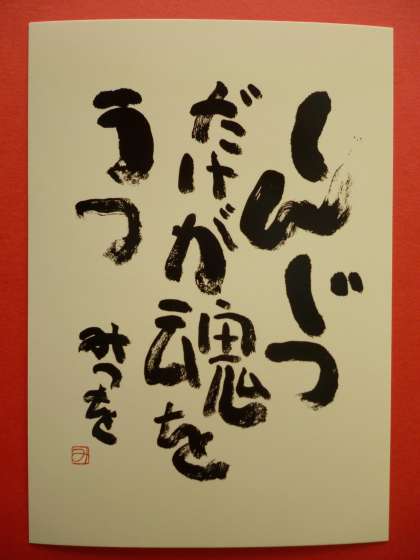 しんじつ
だけが魂を
うつ
みつを
み